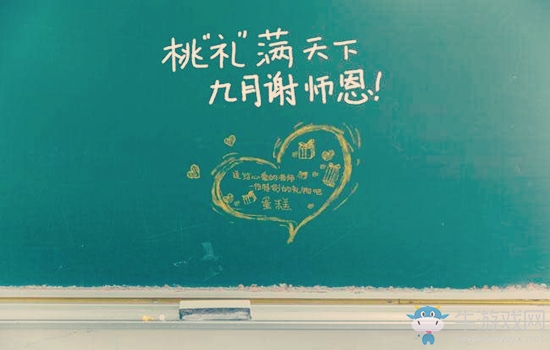 桃“礼”满天下
九月谢师恩!
送给心爱的老师
一份特别的礼物吧
蛋糕
牛游戏网